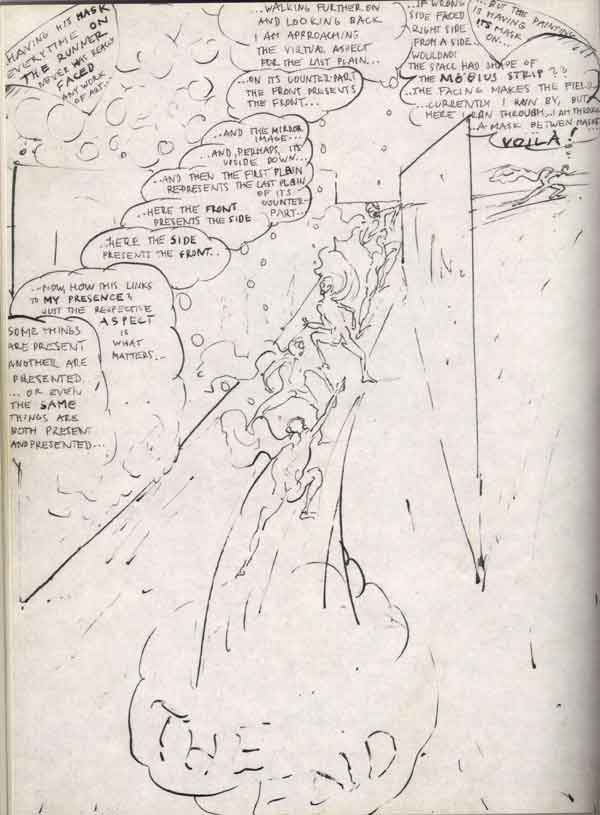 HAVING HIS MASK
EVERYTIME ON
THE RUNNER
NEVER HAS REALLY
FACED
ANY WORK
OF ART...
...WALKING FURTHER ON
AND LOOKING BACK
I AM APPROACHING
THE VIRTUAL ASPECT
FOR THE LAST PLAIN...
...IF WRONG
SIDE FACED
RIGHT SIDE
FROM A SIDE
WOULDND!
THE SPACE HAD SHAPE OF
THE MÖBIUS STRIP??
...THE FACING MAKES THE FIELD...
...CURRENTLY I RAN BY, BUT
HERE I RAN THROUGH... I AM THROUGH
...A MASK BETWEN MASKS...
VOILÀ!
...BUT THE PAINTING
IS HAVING
ITS MASK
ON...
...ON ITS COUNTER-PART
THE FRONT PRESENTS
THE FRONT...
...AND THE MIRROR
IMAGE...
...AND, PERHAPS, ITS
UPSIDE DOWN...
...AND THEN THE FIRST PLAIN
REPRESENTS THE LAST PLAIN
OF ITS
COUNTER-
PART...
...HERE THE FRONT
PRESENTS THE SIDE
...HERE THE SIDE
PRESENTS THE FRONT...
...NOW, HOW THIS LINKS
TO MY PRESENCE?
JUST THE RESPECTIVE
ASPECT
IS
WHAT
MATTERS...
SOME THINGS
ARE PRESENT
ANOTHER ARE
PRESENTED
... OR EVEN
THE SAME
THINGS ARE
BOTH PRESENT
AND PRESENTED...
THE
END